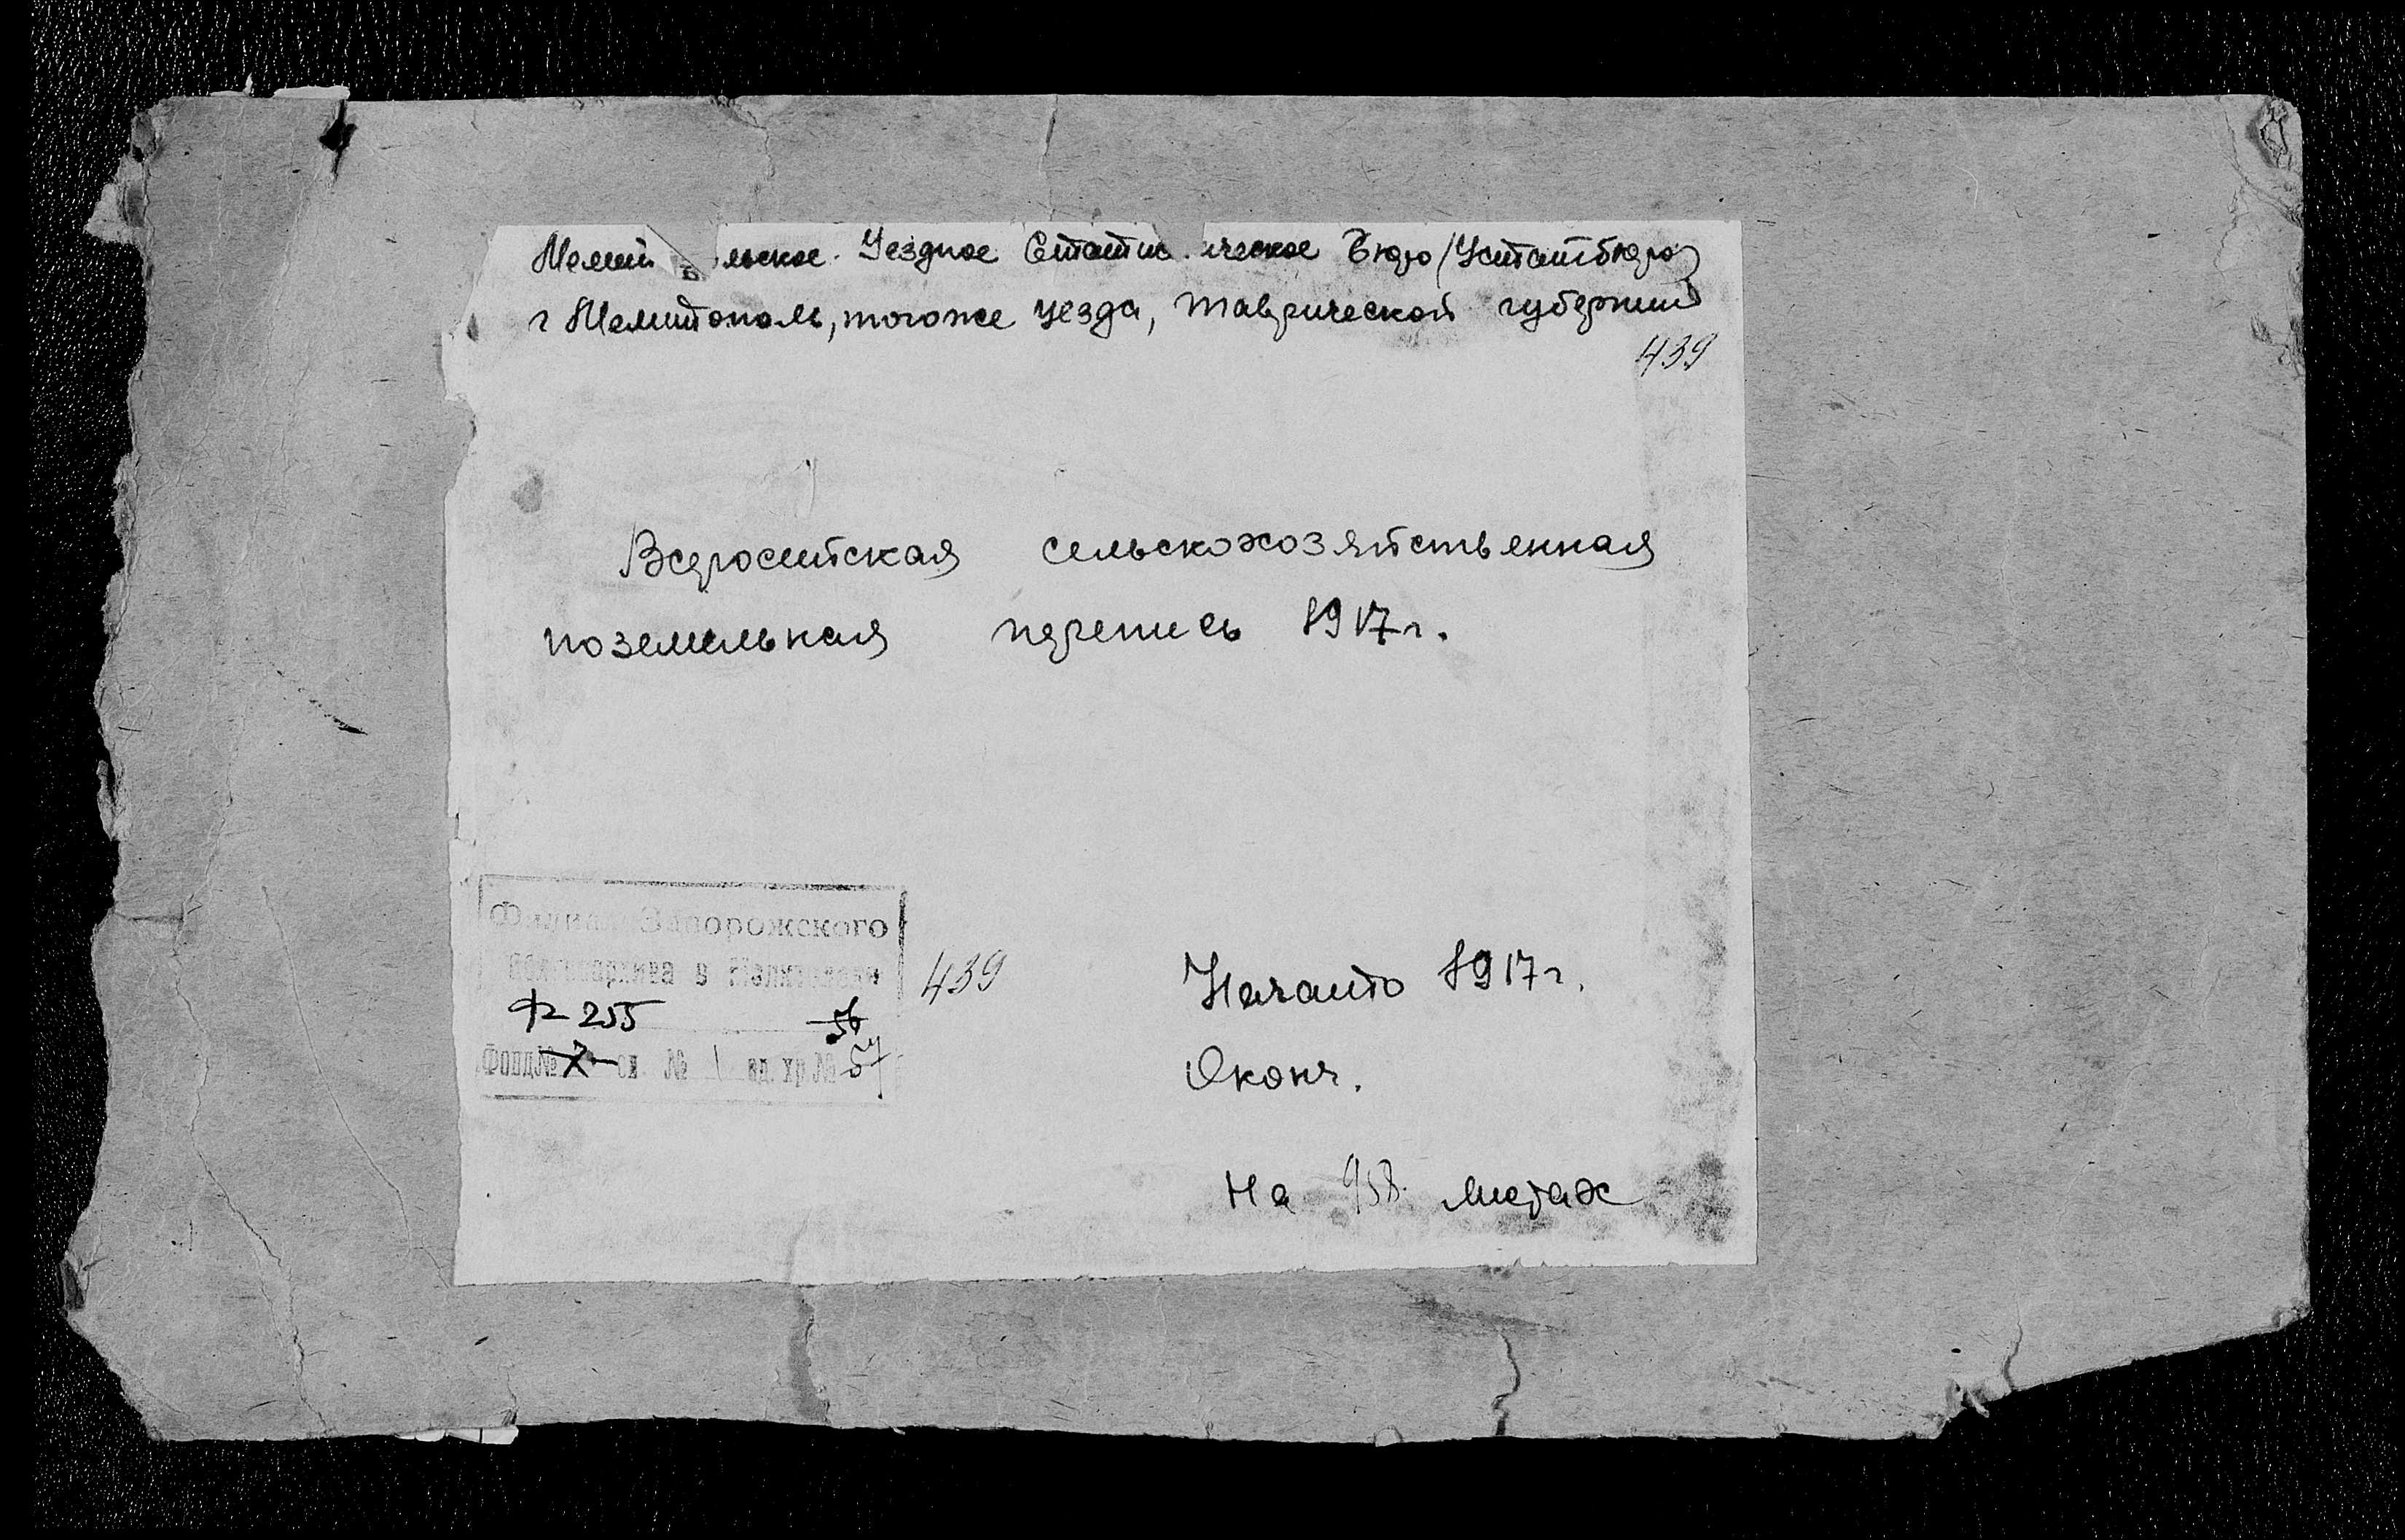 Мелит льское Уездное Статис ическое Бюро (Устатбюро)
г Мелитополь, тогоже уезда, Таврической губернии
439
Всеросийская сельскохозяйственная
поземельная перепись 1917г.
Филиал Запорожского
облгосархива в Мелитополе
439
Ф 255
56
Фонд № 7 оп № 1 ед. хр № 57
Начато 1917г.
Оконч.
На 958. листах